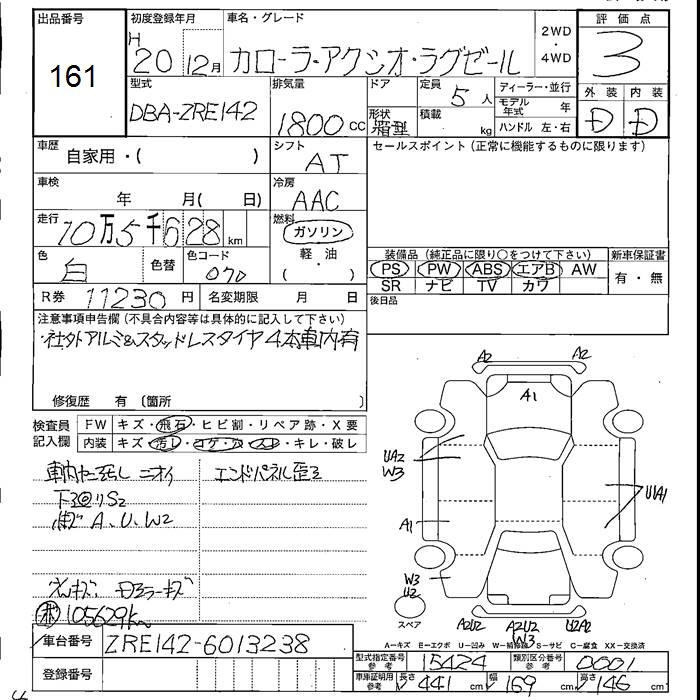 出品番号
161
初度登録年月
H 20 12月
車名・グレード
カローラ・アクシオ・ラグゼール
2WD
・
4WD
評価点
3
型式
DBA-ZRE142
排気量
1800 CC
ドア
形状
箱型
定員
5 人
積載
kg
ディーラー・並行
モデル年式 年
ハンドル 左・右
外装 内装
D D
車歴
自家用・( )
シフト
AT
セールスポイント (正常に機能するものに限ります)
車検
年 月( 日)
冷房
AAC
走行
10万5千628km
燃料
ガソリン
軽・油
( )
色
白
色替
色コード
070
装備品 (純正品に限り○をつけて下さい)
PS PW ABS エアB AW
SR ナビ TV カワ
新車保証書
有・無
R券 11230 円
名変期限 月 日
後日品
注意事項申告欄 (不具合内容等は具体的に記入して下さい)
・社外アルミ&スタッドレスタイヤ4本車内有
修復歴 有 (箇所 )
検査員
記入欄
FW キズ・飛石・ヒビ割・リペア跡・X要
内装 キズ・汚レ・コゲ・穴・スレ・キレ・破レ
ニオイ
エンドパネル歪ミ
下回りS2
A、U、W2
105629km
車台番号 ZRE142-6013238
登録番号
A2 A2
A1
UA2
W3
U1A1
A1
W3
U2
スペア
A2U2 A2U2 U2A2
W3
A－キズ E－エクボ U－凹み W－補修跡 S－サビ C－腐食 XX－交換済
型式指定番号 参考 15424
類別区分番号 参考 0001
車庫証明用 参考 長さ 441 cm 幅 169 cm 高さ 146 cm